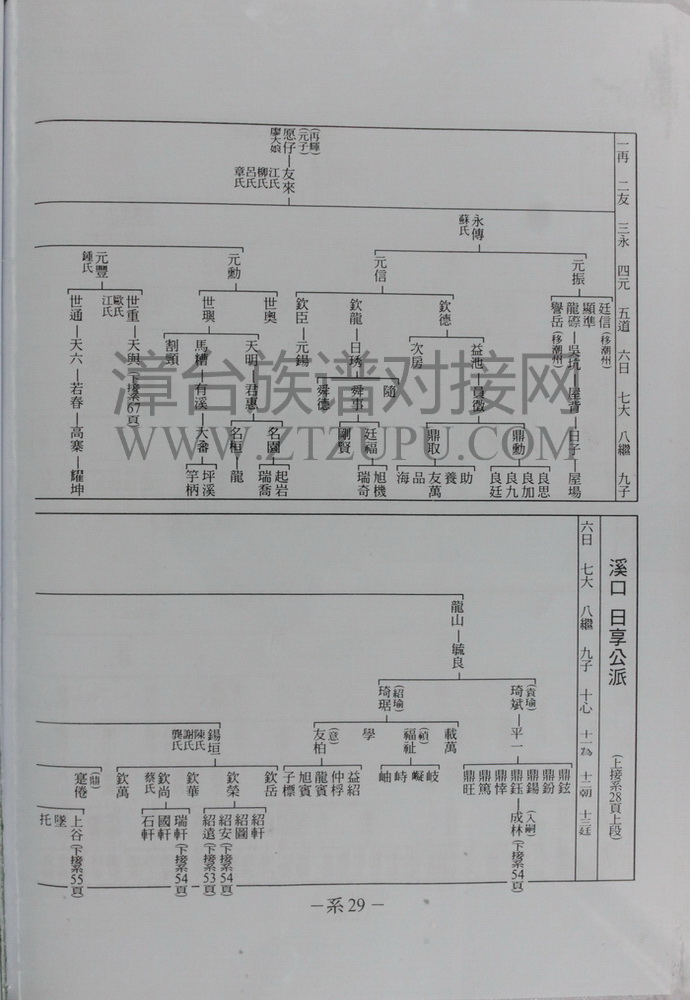 一再 二友 三永 四元 五道 六日 七大 八繼 九子
(再輝)
(元子)
愿仔—友來
廖大娘
江氏
柳氏
呂氏
章氏
永傳
蘇氏
元振
廷信(移潮州)
顯準
龍磜—吳坑—屋背—日子—屋場
譽岳(移潮州)
元信
欽德
益池—員微
鼎勳
良思
良加
良九
良廷
鼎取
助
養
友萬
品
海
次房
欽龍—日琇
隨
舜事
廷福
旭機
瑞奇
剛賢
舜德
欽臣—元錫
元勳
世奧
世璵
天明—君惠
名園
起岩
瑞喬
名桓—龍
馬糟—有溪—大番
坪溪
竿柄
割頸
元豐
鍾氏
世重—天與(下接系67頁)
歐氏
江氏
世通—天六—若春—高寨—耀坤
漳台族谱对接网
WWW.ZTZUPU.COM
溪口 日享公派
(上接系28頁上段)
六日 七大 八繼 九子 十心 十一為 十二朝 十三廷
龍山—毓良
(袁瑜)
琦斌—平一
鼎鉉
鼎鈖
鼎鍚
鼎鈺—成林(下接系54頁)
(入嗣)
鼎悻
鼎篤
鼎旺
(紹瑜)
琦琚
載萬
(禎)
福祉
岐
嶷
峙
岫
學
(意)
友柏
益紹
仲桴
龍賓
旭賓
子標
錫垣
陳氏
謝氏
龔氏
欽岳
欽榮
紹軒
紹圖
紹安(下接系54頁)
紹遠(下接系53頁)
欽華
瑞軒(下接系54頁)
欽尚
蔡氏
國軒
石軒
欽萬
(鼎)
寔倦
上谷(下接系55頁)
墜
托
－系29－